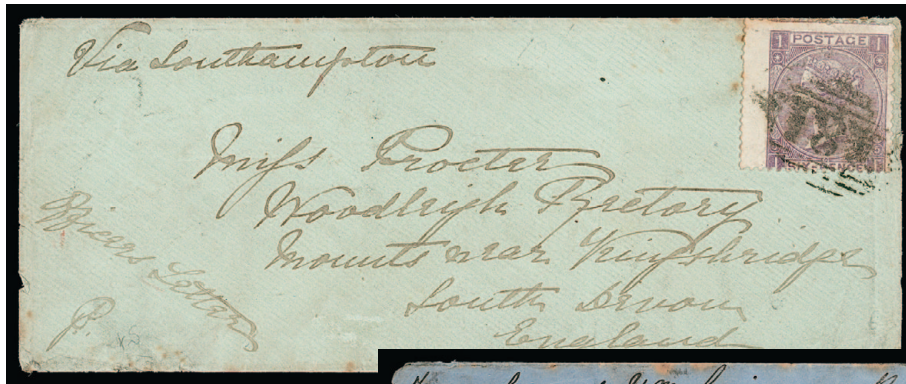 Via Southampton
POSTAGE
Miss Procter
Woodleigh Rectory
Mounts near Kingsbridge
South Devon
England
Officers Letter
P.